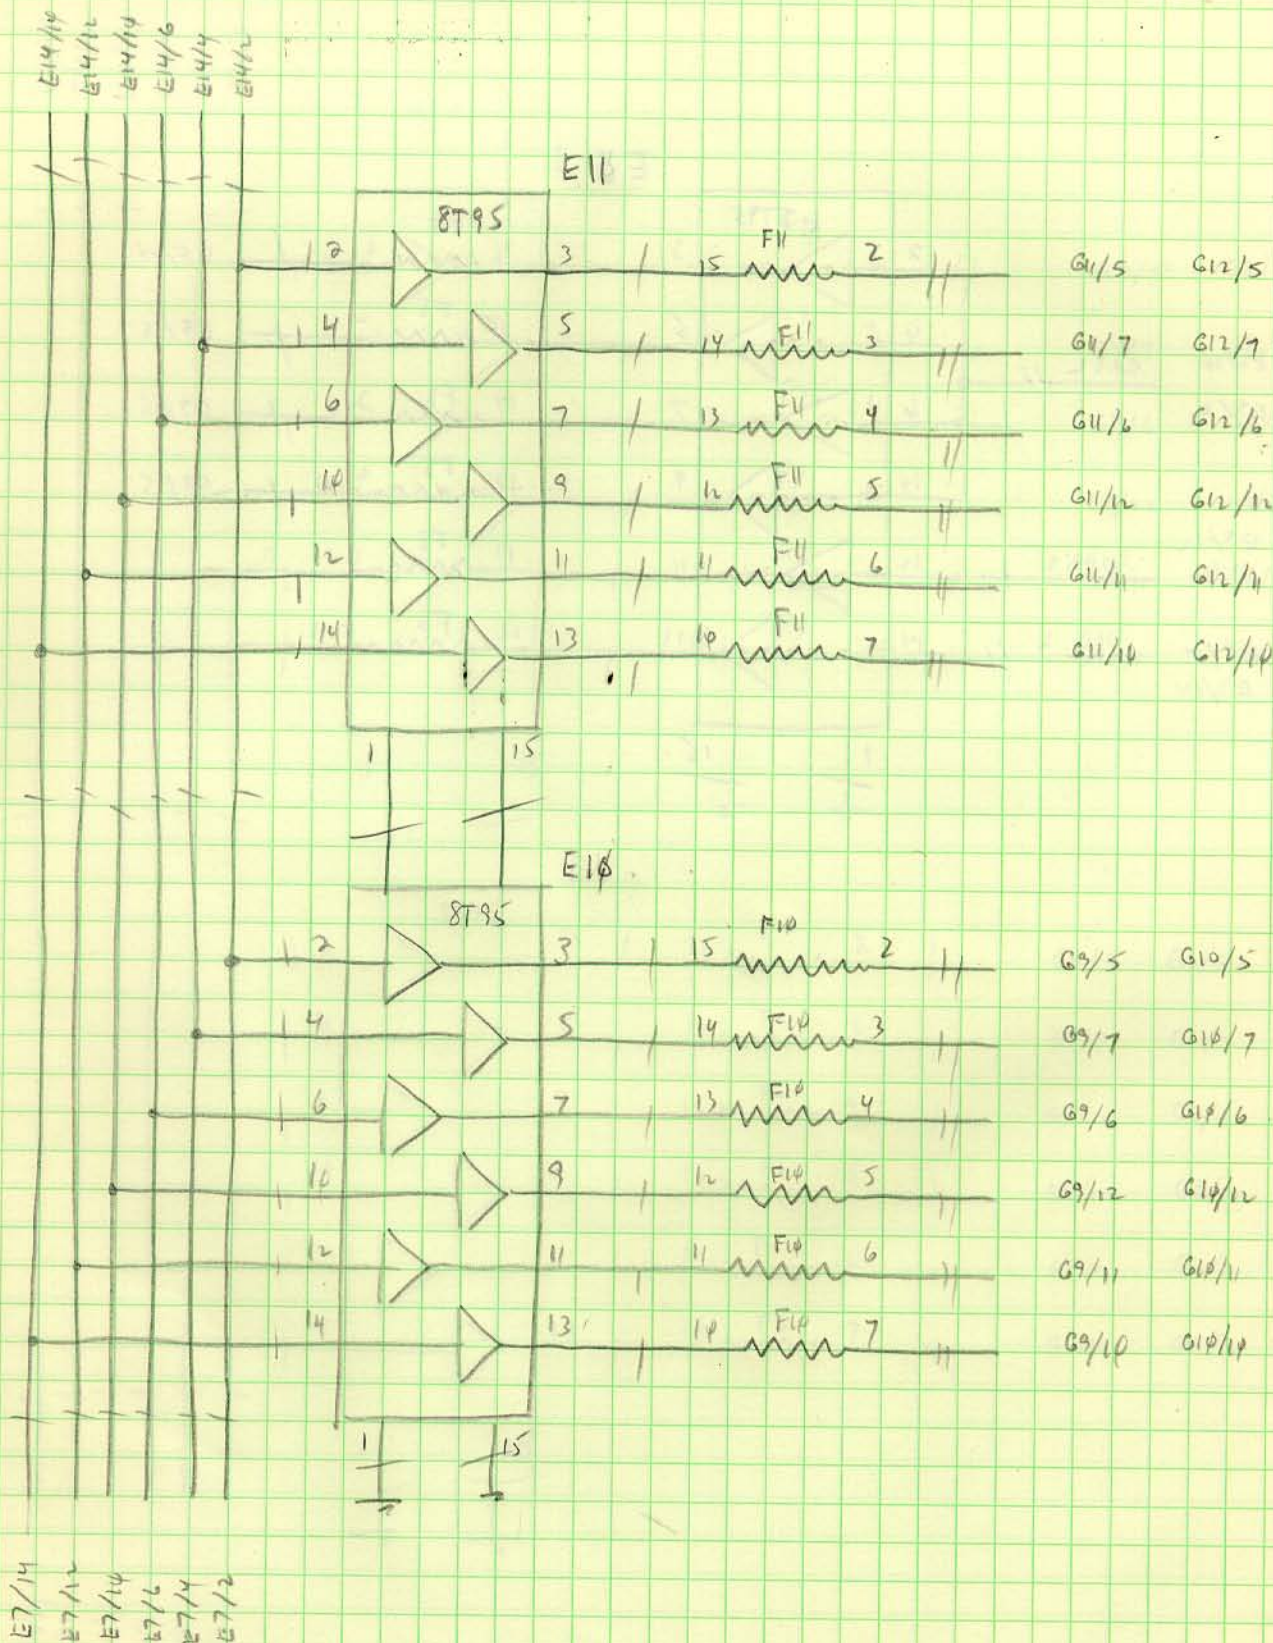 E14/14 E14/12 E14/1φ E14/6 E14/4 E14/2
E11
8T95
2 3 15 F11 2 G11/5 G12/5
4 5 14 F11 3 G11/7 G12/7
6 7 13 F11 4 G11/6 G12/6
1φ 9 12 F11 5 G11/12 G12/12
12 11 11 F11 6 G11/11 G12/11
14 13 1φ F11 7 G11/1φ G12/1φ
1 15
E1φ
8T95
2 3 15 F1φ 2 G9/5 G10/5
4 5 14 F1φ 3 G9/7 G1φ/7
6 7 13 F1φ 4 G9/6 G1φ/6
1φ 9 12 F1φ 5 G9/12 G1φ/12
12 11 11 F1φ 6 G9/11 G1φ/11
14 13 1φ F1φ 7 G9/1φ G1φ/1φ
1 15
E7/14 E7/12 E7/1φ E7/6 E7/4 E7/2